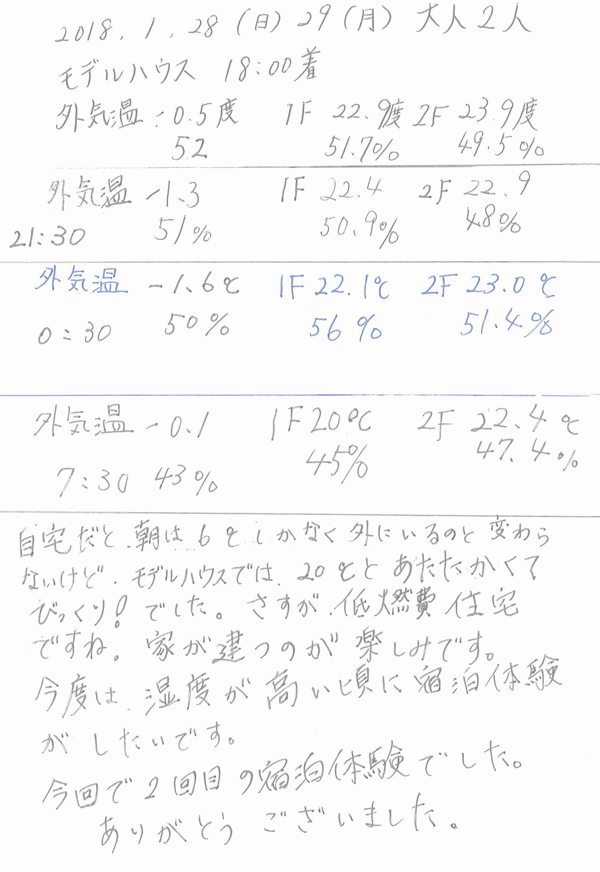 2018. 1. 28 (日) 29 (月) 大人2人
モデルハウス 18:00着
外気温 -0.5度 1F 22.9度 2F 23.9度
52 51.7% 49.5%
外気温 -1.3 1F 22.4 2F 22.9
21:30 51% 50.9% 48%
外気温 -1.6℃ 1F 22.1℃ 2F 23.0℃
0:30 50% 56% 51.4%
外気温 -0.1 1F 20℃ 2F 22.4℃
7:30 43% 45% 47.4%
自宅だと、朝は6℃しかなく外にいるのと変わら
ないけど、モデルハウスでは、20℃とあたたかくて
びっくり!でした。さすが、低燃費住宅
ですね。家が建つのが楽しみです。
今度は、湿度が高い頃に宿泊体験
がしたいです。
今回で2回目の宿泊体験でした。
ありがとうございました。